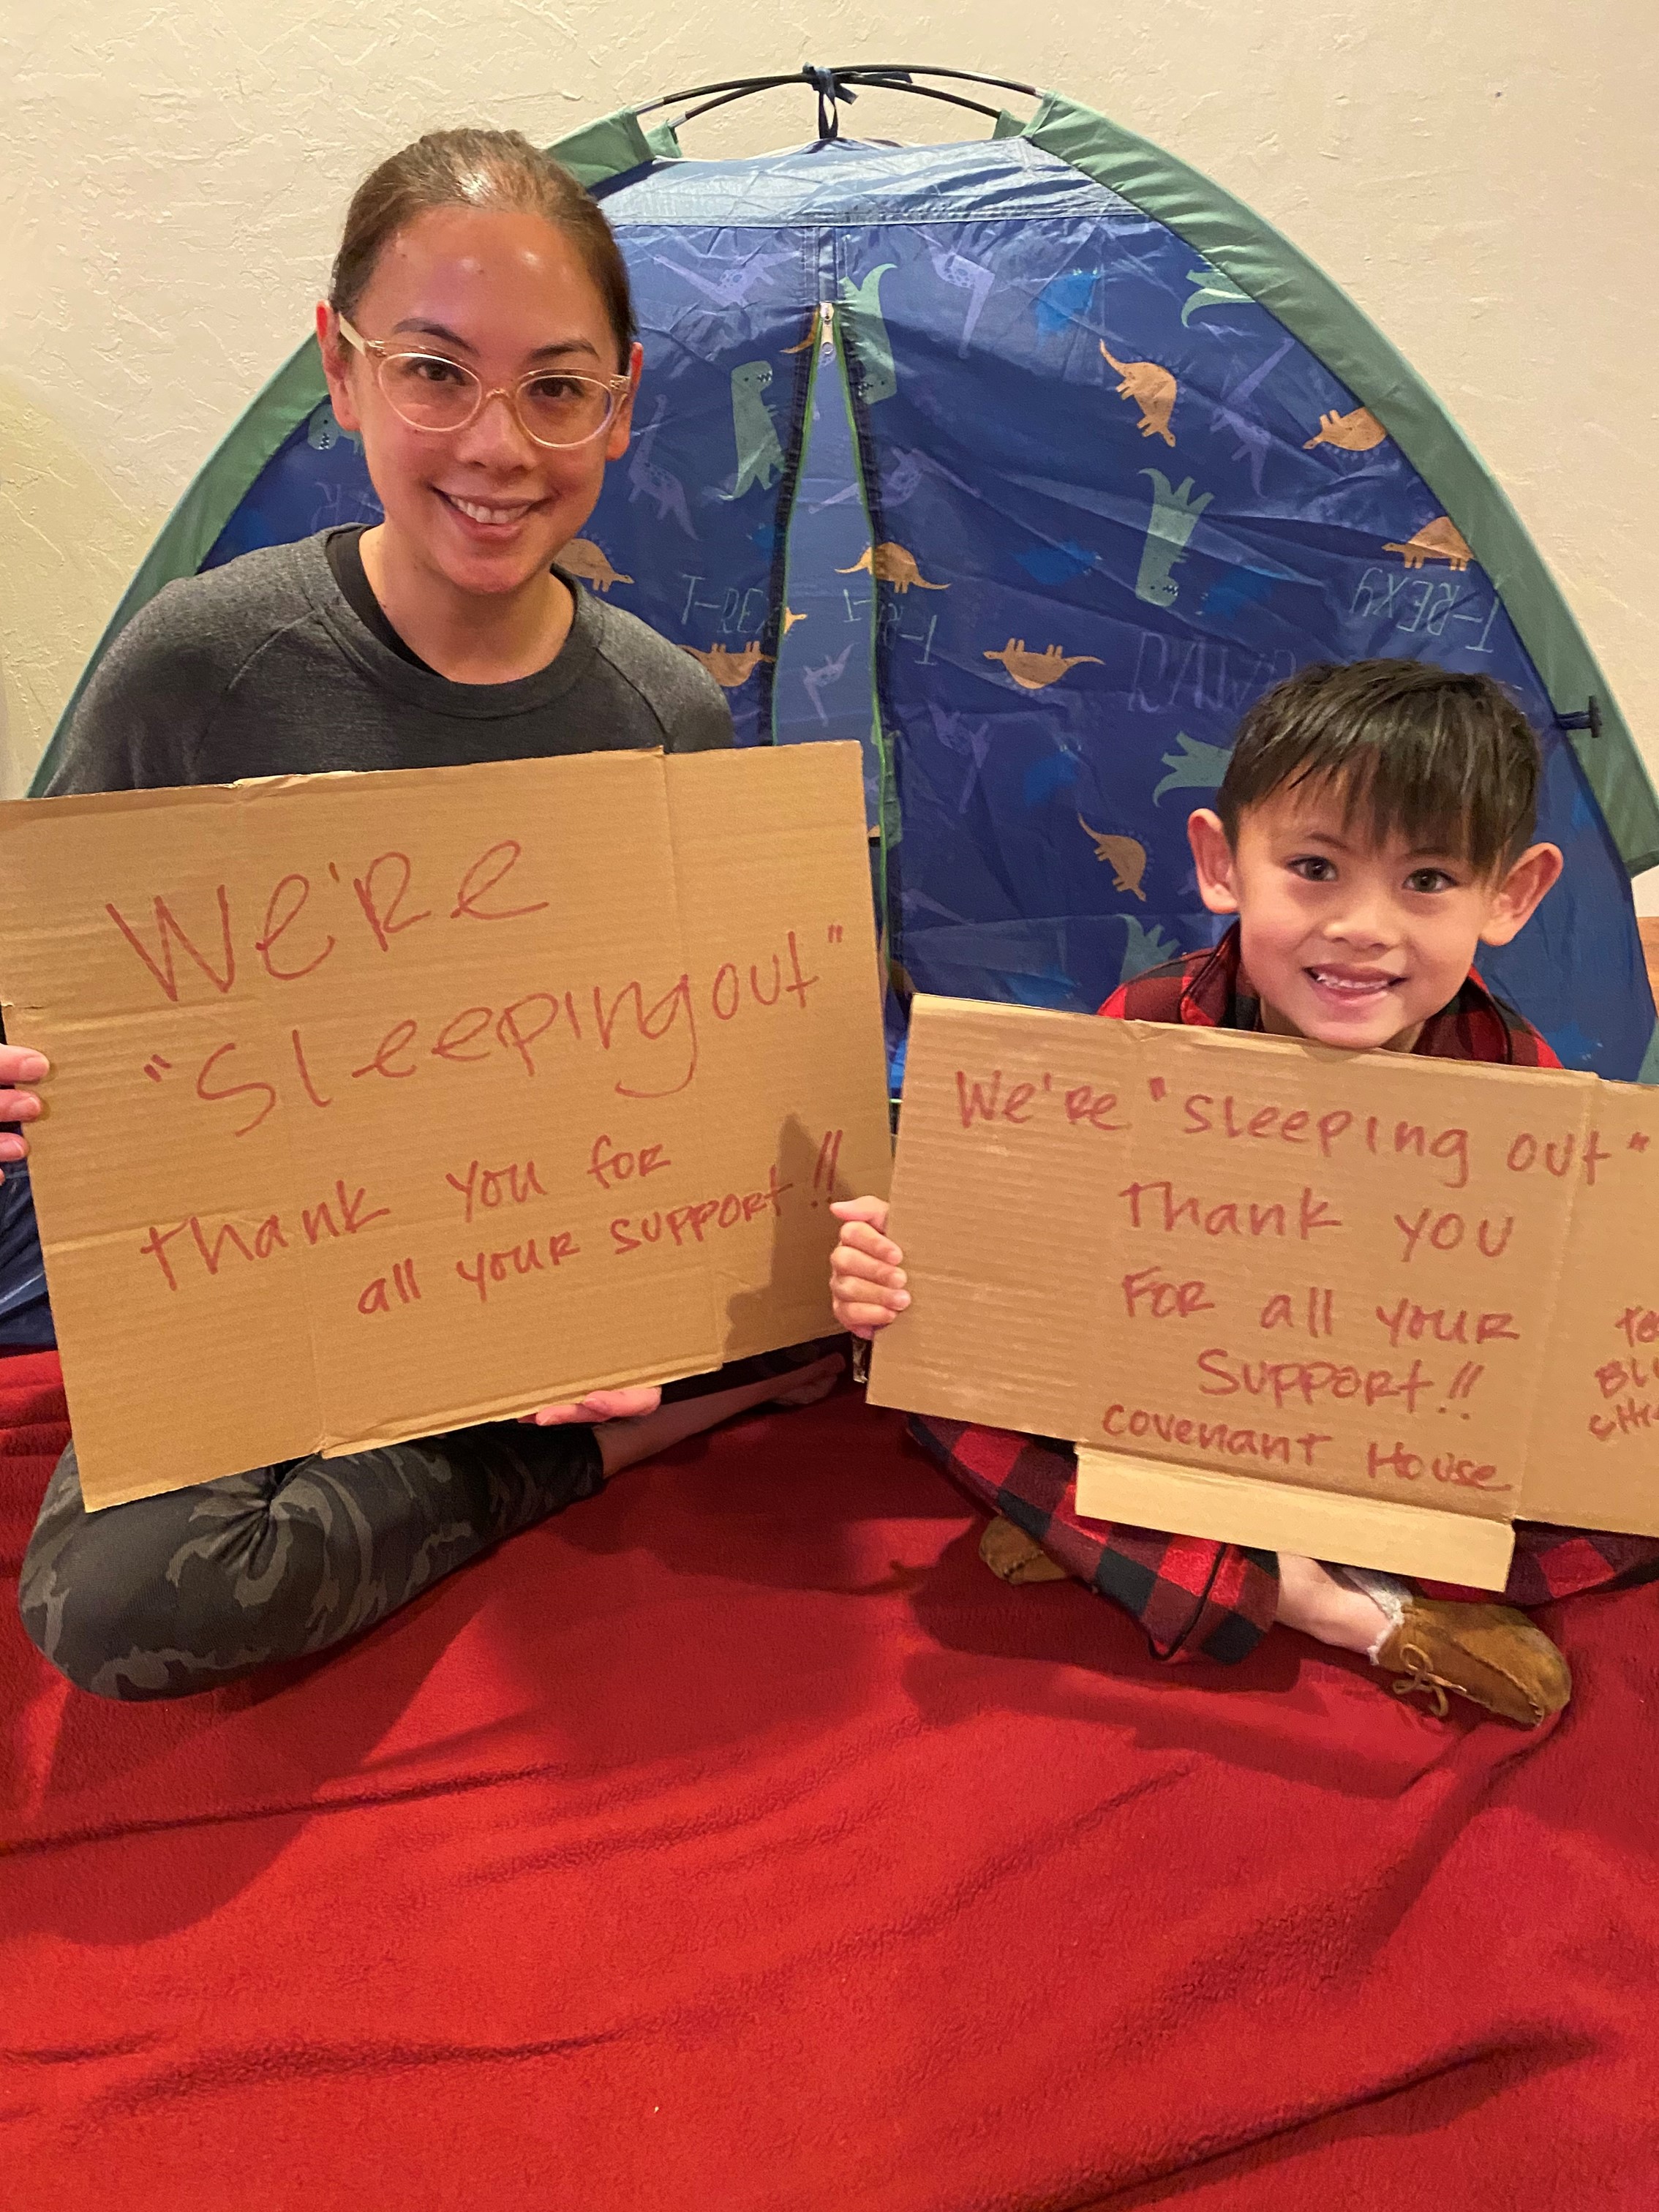 We're
"Sleeping out"
thank you for
all your support!!
We're "sleeping out"
Thank you
For all your
Support!!
Covenant House
T-REX
T-REXY
RAWR